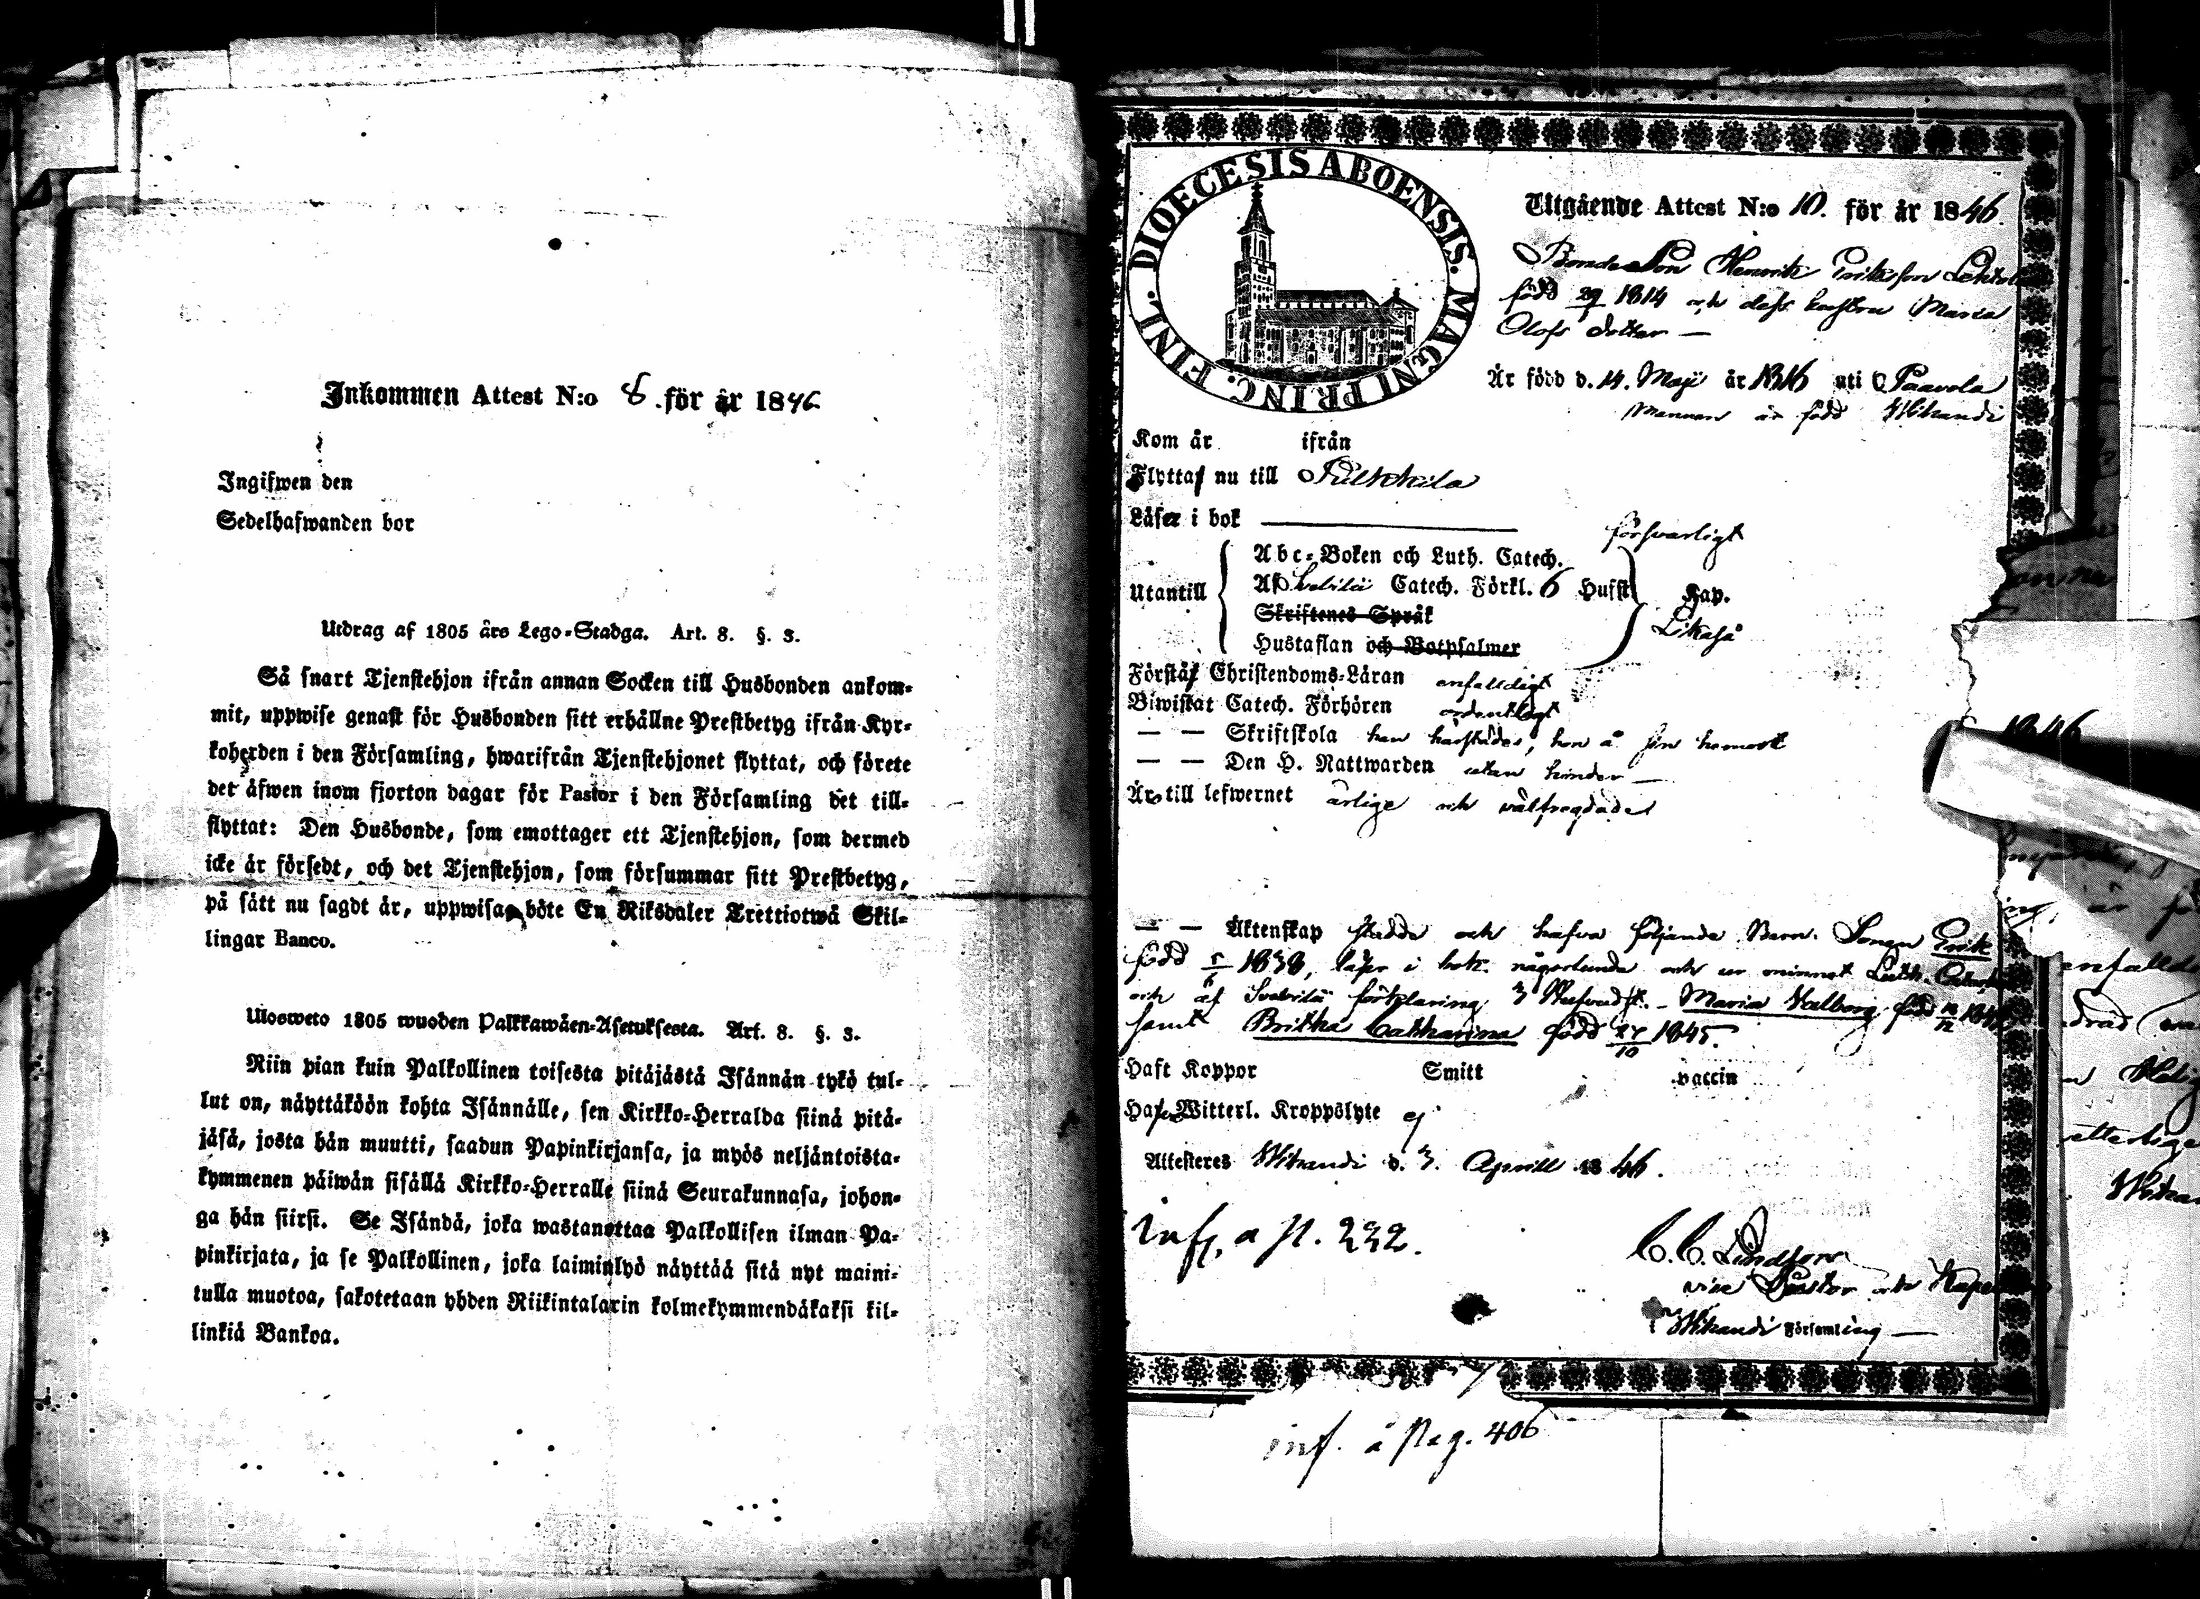 Inkommen Attest N:o 8. för år 1846
Ingifwen den
Sedelhafwanden bor
Utdrag af 1805 års Lego-Stadga. Art. 8. §. 3.
Så snart Tjenstehjon ifrån annan Socken till Husbonden ankom-
mit, uppwise genast för Husbonden sitt erhållne Prestbetyg ifrån Kyr-
koherden i den Församling, hwarifrån Tjenstehjonet flyttat, och förete
det äfwen inom fjorton dagar för Pastor i den Församling det till-
flyttat: Den Husbonde, som emottager ett Tjenstehjon, som dermed
icke är försedt, och det Tjenstehjon, som försummar sitt Prestbetyg,
på sått nu sagdt är, uppwisa, böte En Riksdaler Trettiotwå Skil-
lingar Banco.
Ulosweto 1805 wuoden Palkkawäen-Asetuksesta. Art. 8. §. 3.
Niin pian kuin Palkollinen toisesta pitäjästä Isännän tykö tul-
lut on, näyttäköön kohta Isännälle, sen Kirkko-Herralda siinä pitä-
jäsä, josta hän muutti, saadun Papinkirjansa, ja myös neljäntoista-
kymmenen päiwän sisällä Kirkko-Herralle siinä Seurakunnasa, johon-
ga hän siirsi. Se Isändä, joka wastanottaa Palkollisen ilman Pa-
pinkirjata, ja se Palkollinen, joka laiminlyö näyttää sitä nyt maini-
tulla muotoa, sakotetaan yhden Riikintalarin kolmekymmendäkaksi kil-
linkiä Bankoa.
DIOECESIS ABOENSIS. MAGNI PRINC. FINL.
Utgående Attest N:o 10. för år 1846.
Bondeson Henrik Eriksson
född 29 1814 och dess hustru Maria
Olofs dotter —
Är född d. 14. Maji år 1816 uti Paavola
Mannen är född Wihandi
Kom år ifrån
Flyttas nu till Pulkkila
Läser i bok försvarligt
Utantill
Abc-Boken och Luth. Catech.
Af Svebilii Catech. Förkl. 6 Hufst. Kap.
Skriftenes Språk
Hustaflan och Botpsalmer Likaså
Förstås Christendoms-Läran enfalldigt
Biwistat Catech. Förhören ordentligt
— — Skriftskola
— — Den H. Nattwarden utan hinder —
Är till lefwernet ärlige och välfregdade
— — Äktenskap stadde och hafva följande Barn. Sonen Erik
född 5/6 1838, läser i bok någorlunda och ur minnet Luth.
och af Svebilii förklaring 3 Hufvudst. — Maria Walborg född
samt Britha Catharina född 27/10 1845.
Haft Koppor Smitt vaccin
Hafwa Witterl. Kroppslyte ej
Attesteres Wihandi d. 3. Aprill 1846.
inf. a p. 232.
C. C.
vice Pastor och
i Wihandi Församling —
inf. å Pag. 406
1846